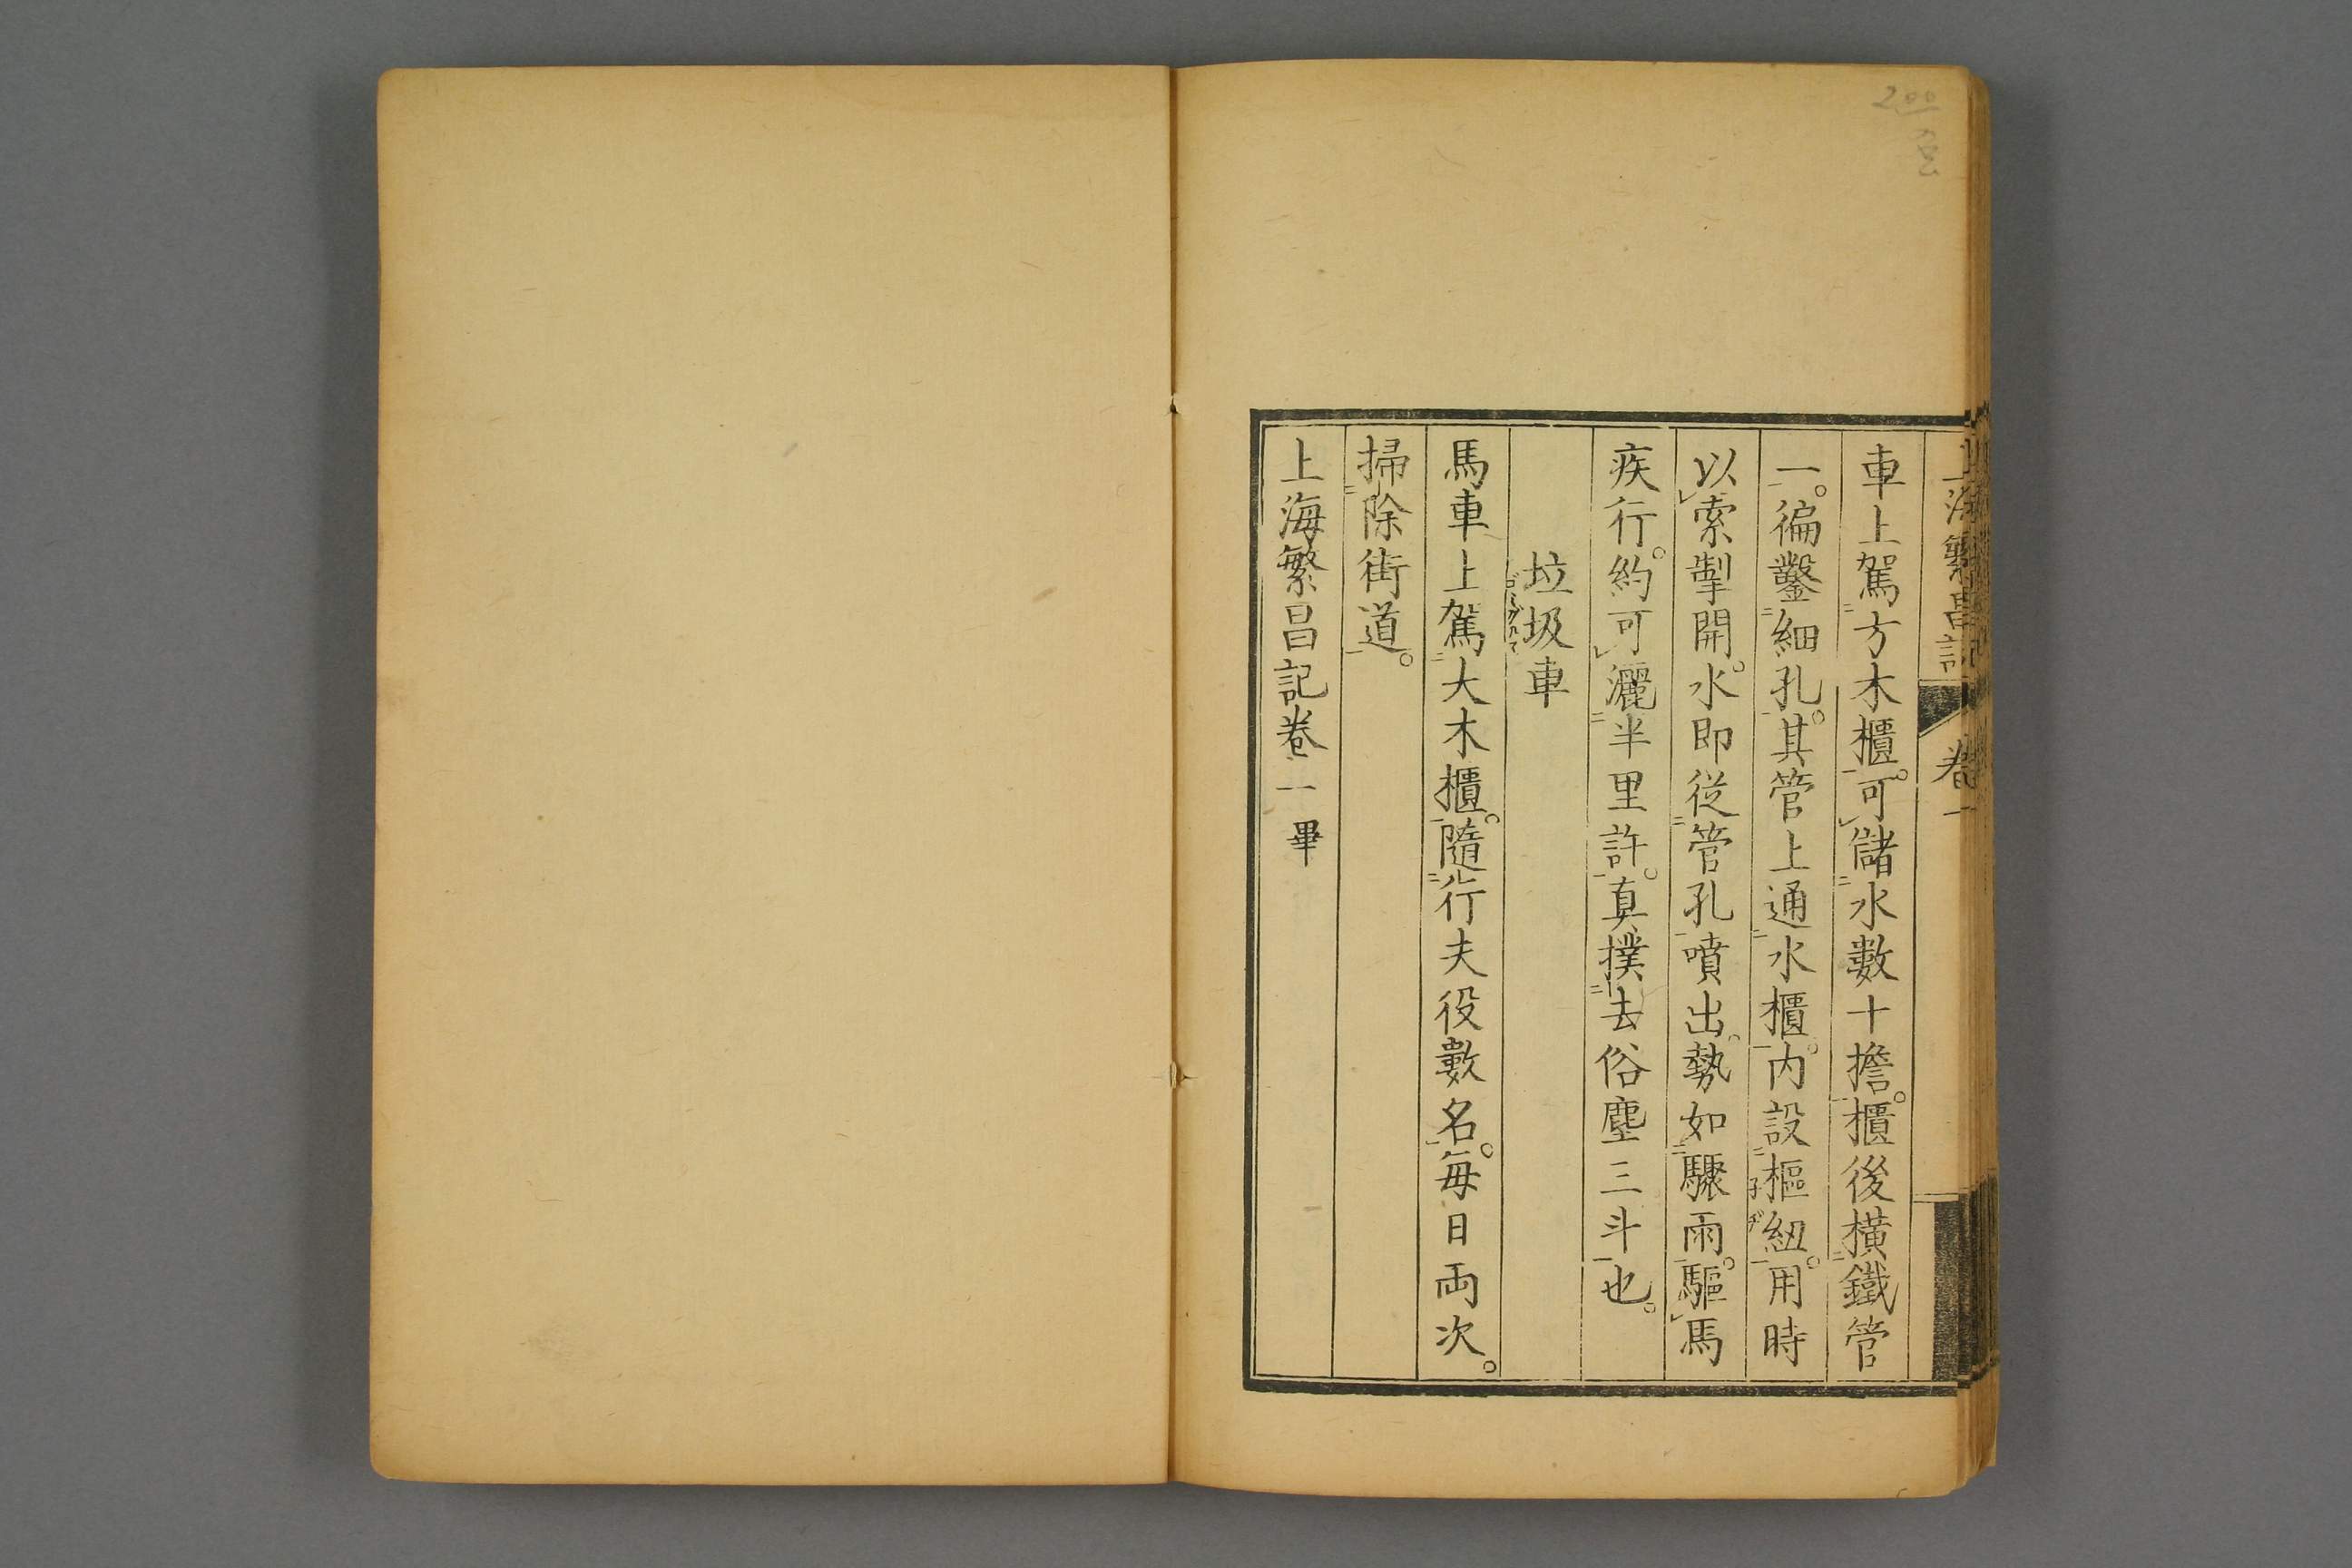 上海繁昌記 卷一
車上駕方木櫃。可儲水數十擔。櫃後橫鐵管
一。徧鑿細孔。其管上通水櫃。内設樞紐。用時
以索掣開。水即從管孔噴出。勢如驟雨。驅馬
疾行。約可灑半里許。真撲去俗塵三斗也。
垃圾車
馬車上駕大木櫃。隨行夫役數名。每日両次。
掃除街道。
上海繁昌記卷一畢
200